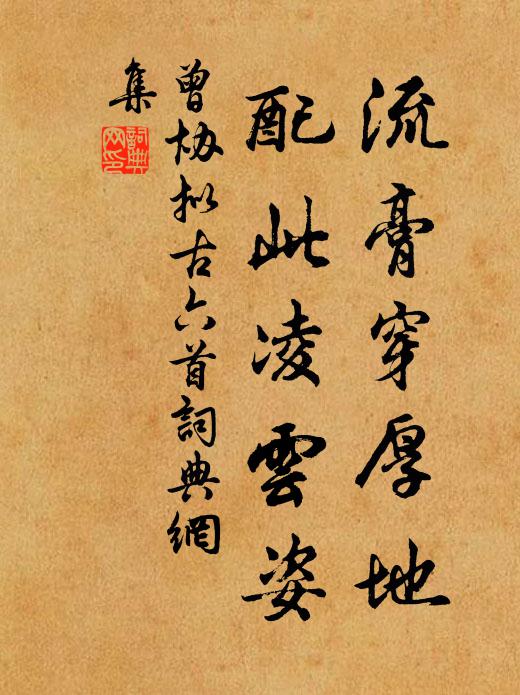 流膏穿厚地
配此凌雲姿
曾協擬古六首詞典網
集
詞典
網印